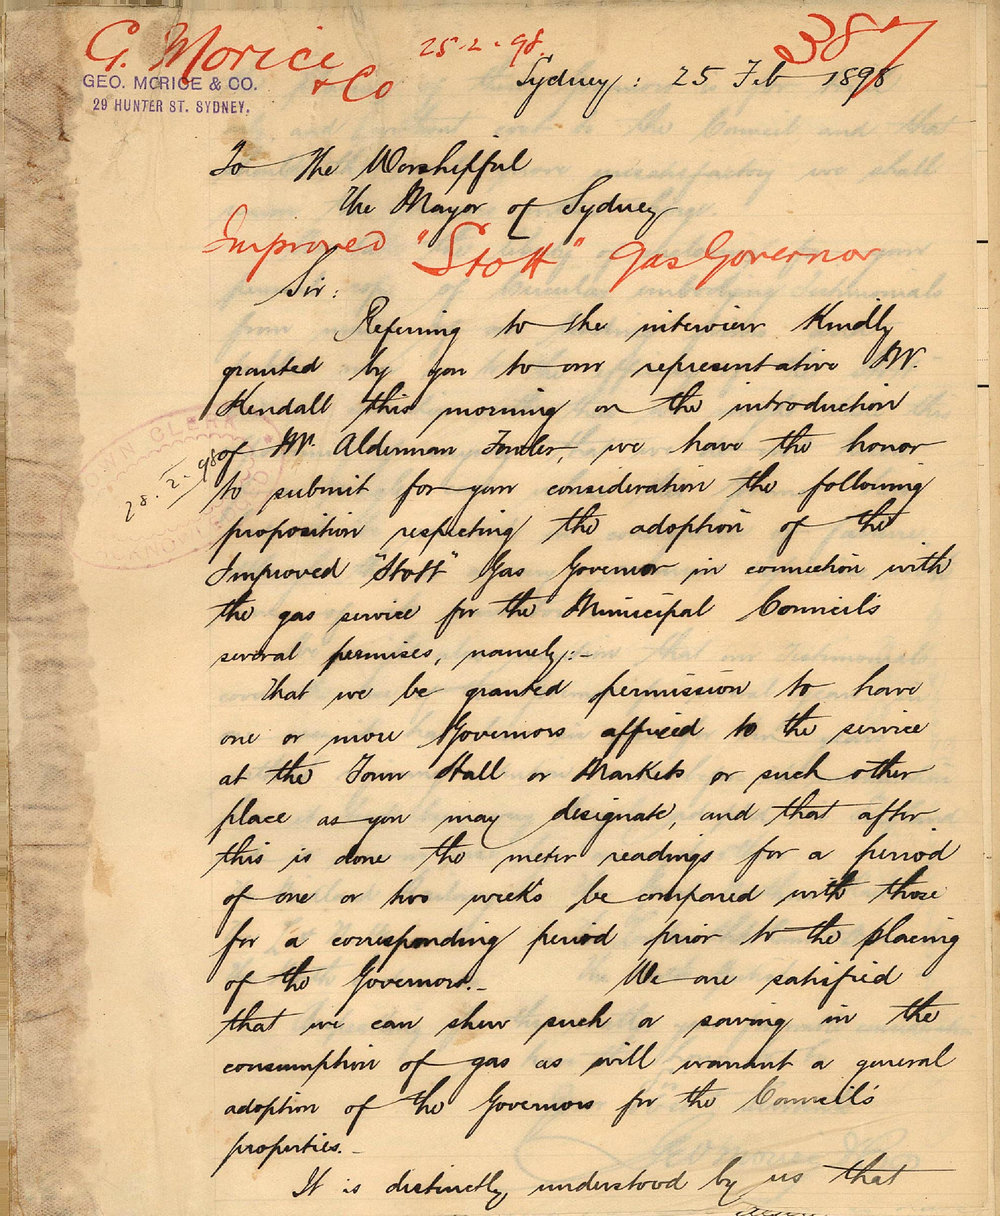 G. Morice
& Co
25-2-98.
387
GEO. MORICE & CO.
29 HUNTER ST. SYDNEY.
Sydney: 25 Feb 1898
To the Worshipful
The Mayor of Sydney
Improved "Stott" Gas Governor
Sir:
Referring to the interview Kindly
granted by you to our representative Mr.
Kendall this morning on the introduction
of Mr. Alderman Fowler, we have the honor
to submit for your consideration the following
proposition respecting the adoption of the
Improved "Stott" Gas Governor in connection with
the gas service for the Municipal Council's
several premises, namely:-
That we be granted permission to have
one or more Governors affixed to the service
at the Town Hall or Markets or such other
place as you may designate, and that after
this is done the meter readings for a period
of one or two week's be compared with those
for a corresponding period prior to the placing
of the Governors.- We are satisfied
that we can show such a saving in the
consumption of gas as will warrant a general
adoption of the Governors for the Council's
properties.-
It is distinctly understood by us that
TOWN CLERK
28.2.98